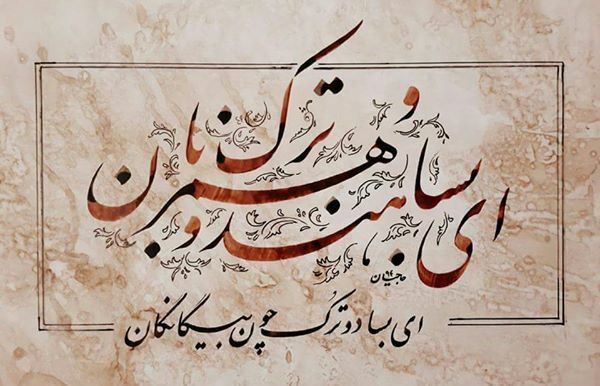 ای بسا هندو و ترک همزبان
ای بسا دو ترک چون بیگانگان